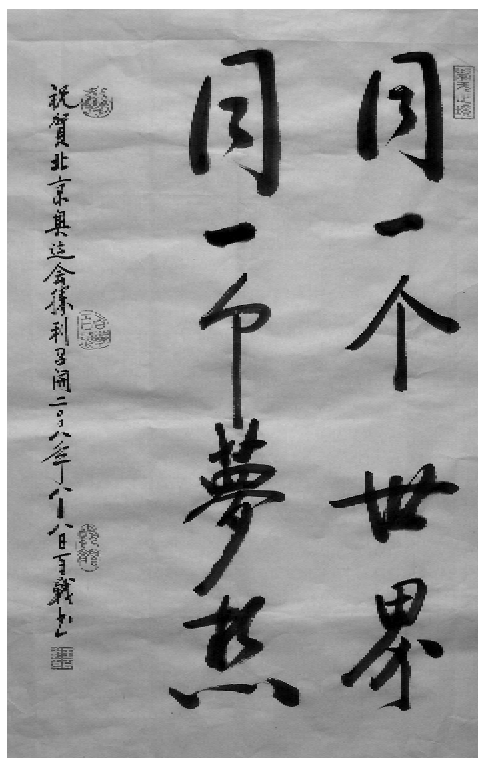 同一个世界
同一个夢想
祝賀北京奥运会勝利召開二〇〇八年八月八日百戰书